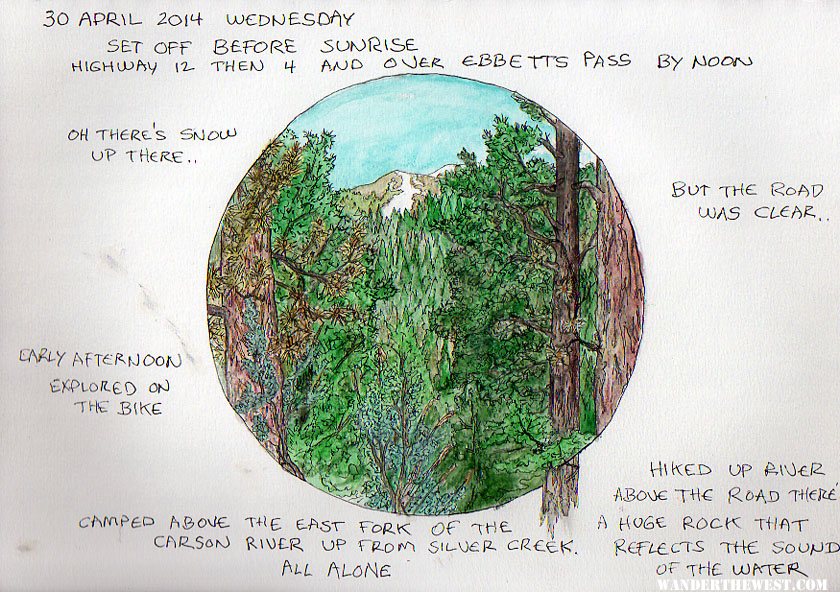 30 APRIL 2014 WEDNESDAY
SET OFF BEFORE SUNRISE
HIGHWAY 12 THEN 4 AND OVER EBBETTS PASS BY NOON
OH THERE'S SNOW
UP THERE..
BUT THE ROAD
WAS CLEAR..
EARLY AFTERNOON
EXPLORED ON
THE BIKE
CAMPED ABOVE THE EAST FORK OF THE
CARSON RIVER UP FROM SILVER CREEK.
ALL ALONE
HIKED UP RIVER
ABOVE THE ROAD THERE'
A HUGE ROCK THAT
REFLECTS THE SOUND
OF THE WATER
WANDERTHEWEST.COM